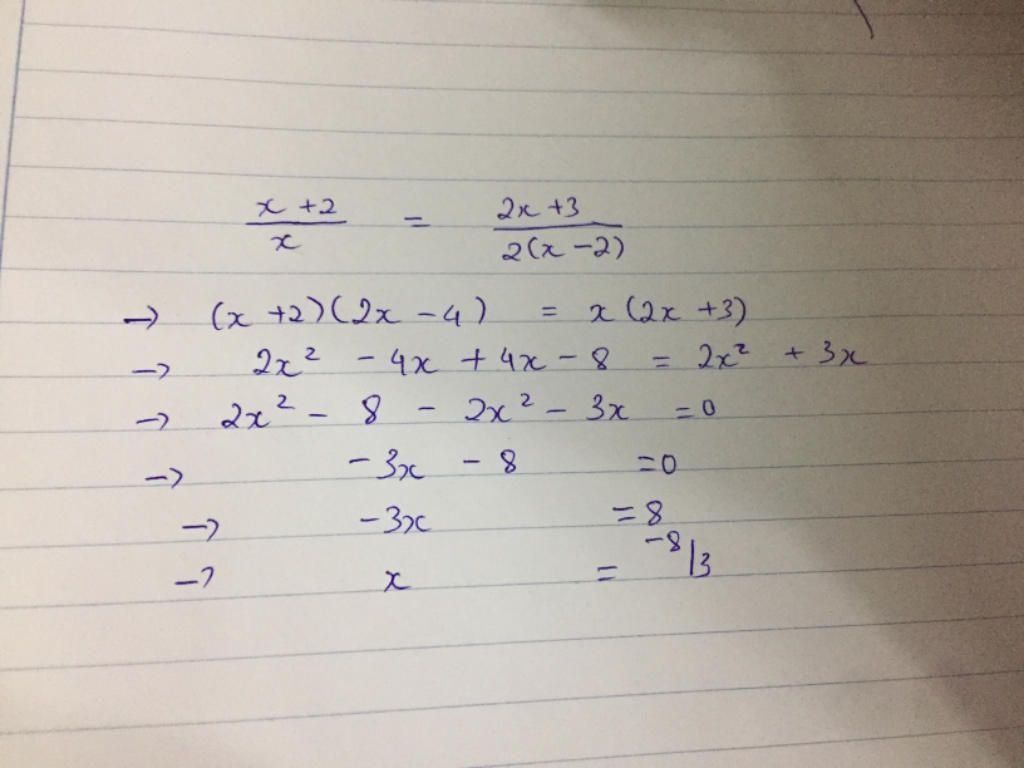 (x +2)/x = (2x +3)/(2(x −2))
→ (x +2)(2x −4) = x(2x +3)
→ 2x² − 4x + 4x − 8 = 2x² + 3x
→ 2x² − 8 − 2x² − 3x = 0
→ −3x − 8 = 0
→ −3x = 8
→ x = −8/3